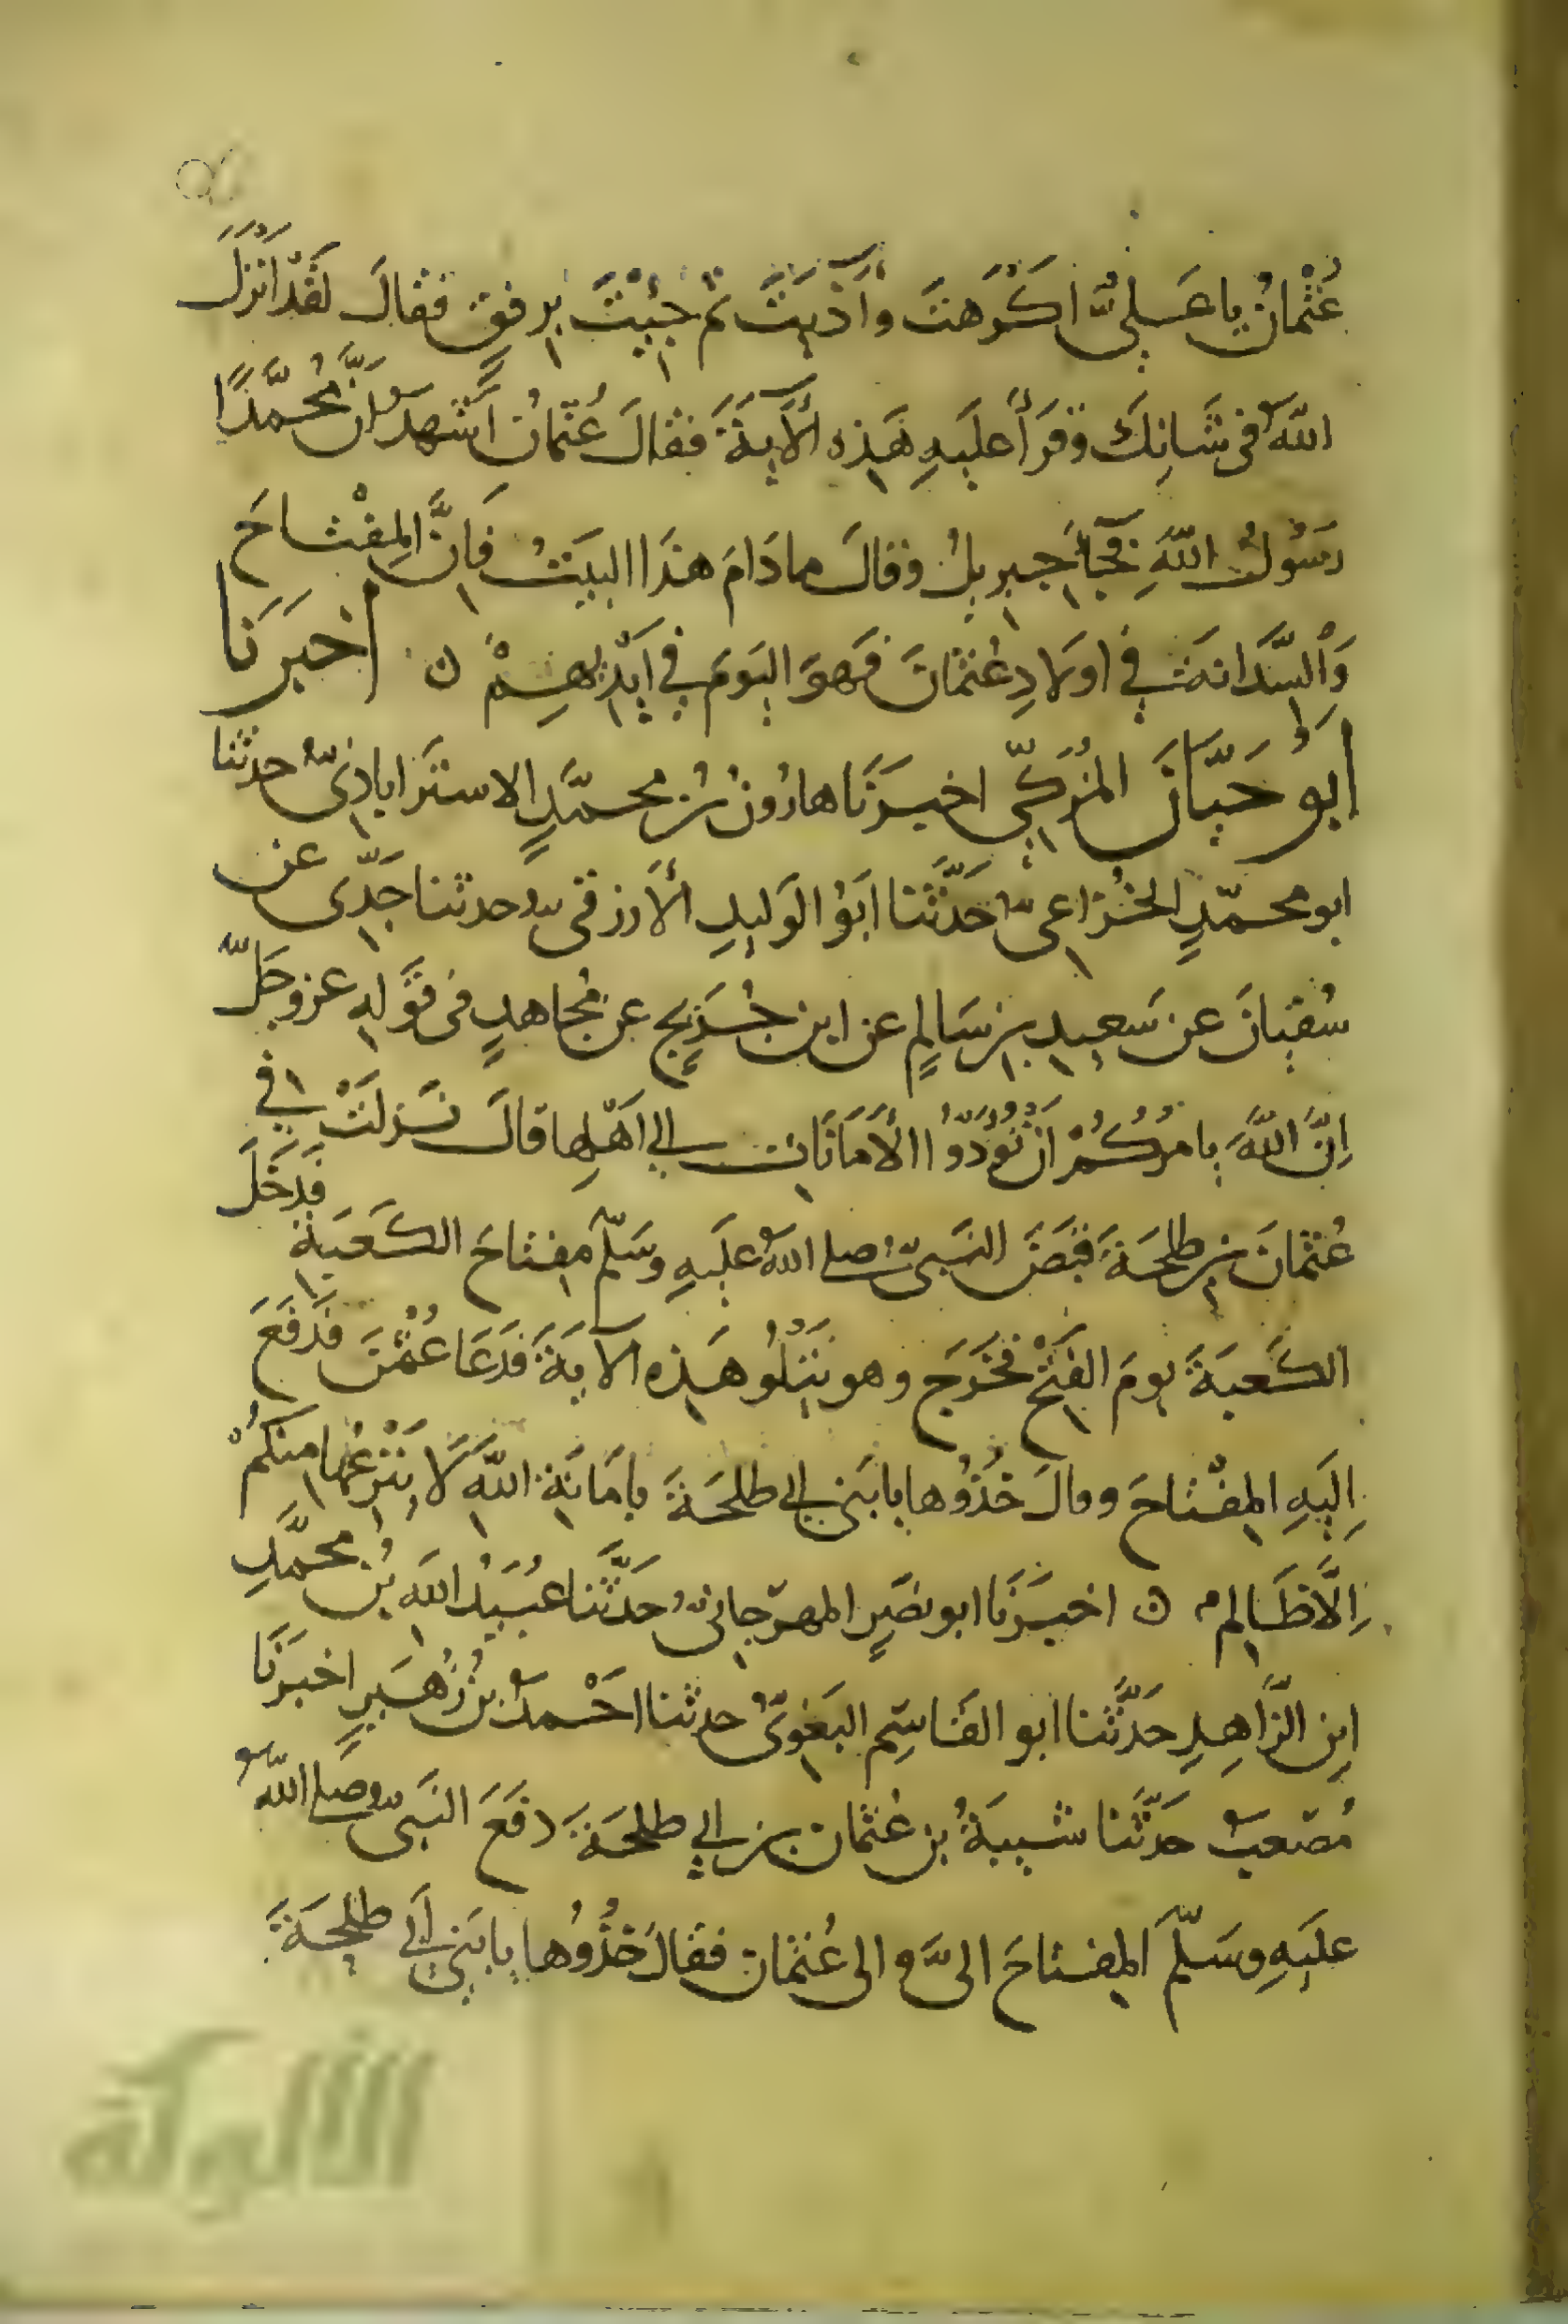 عُثْمانُ يا عَلِيُّ اكَرَهتَ وآذَيتَ ثُمّ جِئْتَ بِرفقٍ فقالَ لَقَدْ اَنْزَلَ
اللهُ فى شَانِكَ وقَرَأَ عليَهِ هَذِه الآيةَ فقالَ عُثمانُ اَشهَدُ اَنَّ مُحمَّدًا
رَسُولُ اللهِ فجَآءَ جبريلُ وقالَ ما دَامَ هذَا البيَتُ فَاِنَّ المِفْتاحَ
وَالسَّدَانةَ فِي اولادِ عُثمانَ فهوَ اليَومَ فِي اَيْديهِمْ ۞ اخبَرَنا
ابوُ حَسّانَ المُزكِّي اخبرَنَا هارُونُ بنُ محمّدٍ الاستَراباذِىُّ حدثنا
ابو محمّدٍ الخُزاعىُّ حَدَّثَنا ابَوُ الوَليدِ الأزرقىُّ حدثنا جَدِّى عن
سُفيانَ عن سَعيدِ بنِ سَالِمٍ عن ابن جُرَيجٍ عن مُجاهدٍ فى قَولهِ عز وجَلّ
اِنَّ اللهَ يامُرُكُمْ اَنْ تُؤَدُّوا الأَمَانَاتِ الى اَهْلِها قالَ نَزلَتْ في
عُثمانَ بنِ طلحَةَ قبَضَ النَّبىُّ صلى اللهُ عليَهِ وسَلّم مِفتاحَ الكَعبَةِ فدَخَلَ
الكَعبَةَ يومَ الفَتْحِ فخَرَج وهو يَتْلُو هَذِه الآيَةَ فدَعَا عُثْمنَ فدَفَعَ
اِليَهِ المِفْتاحَ وقالَ خُذُوُها يا بَنى ابي طلحَةَ بامَانَةِ اللهِ لَا يَنْزِعُها مِنكُمْ
اِلَّا ظَالِم ۞ اخبَرَنَا ابو نصَرٍ المهرَجانىُّ حَدَّثَنا عُبَيدُ اللهِ بنُ محمَّدِ
ابنِ الزَّاهِدِ حَدَّثَنا ابو القَاسِمِ البَغوِىُّ حدثنا احْمدُ بنُ زُهَيرٍ اخبَرَنَا
مُصَعبٌ حَدَّثَنا شَيبَةُ بنُ عُثمانَ بنِ ابي طلحَةَ دفَعَ النَبىُّ صَلى اللهُ
عليَهِ وسَلّمَ المِفتاحَ الىَّ والى عُثمانَ فقالَ خُذُوُها يا بَنى اَبي طلحَةَ
الألوكة